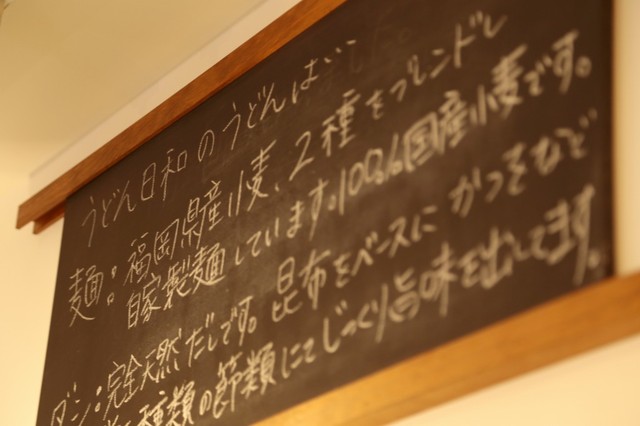 うどん日和のうどんは…
麺:福岡県産小麦、2種をブレンドし
自家製麺しています。100%国産小麦です。
ダシ:完全天然だしです。昆布をベースにかつをなど
種類の節類にてじっくり旨味を出してます。